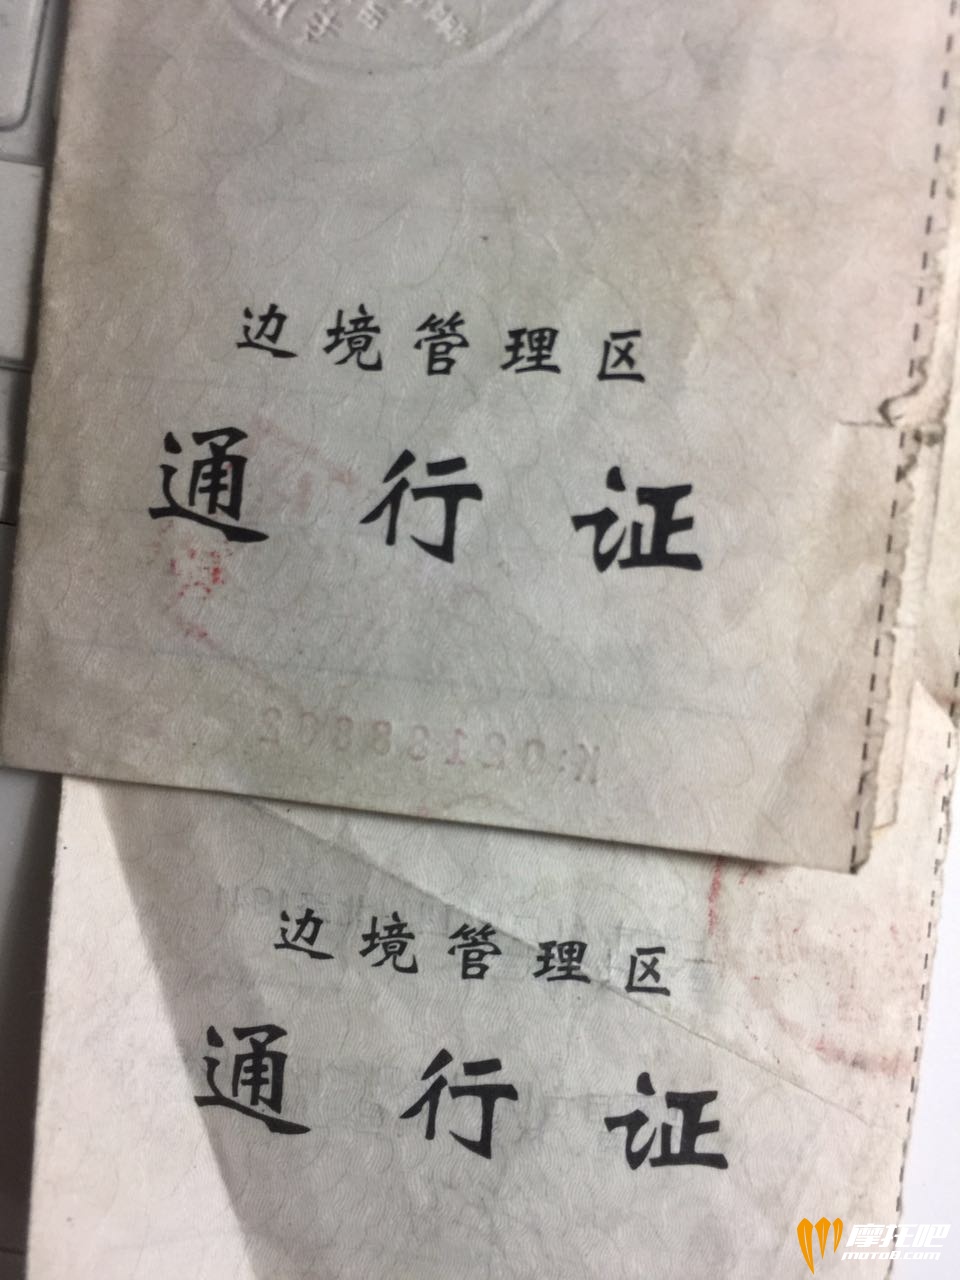 边境管理区
通行证
边境管理区
通行证
摩托吧
moto8.com